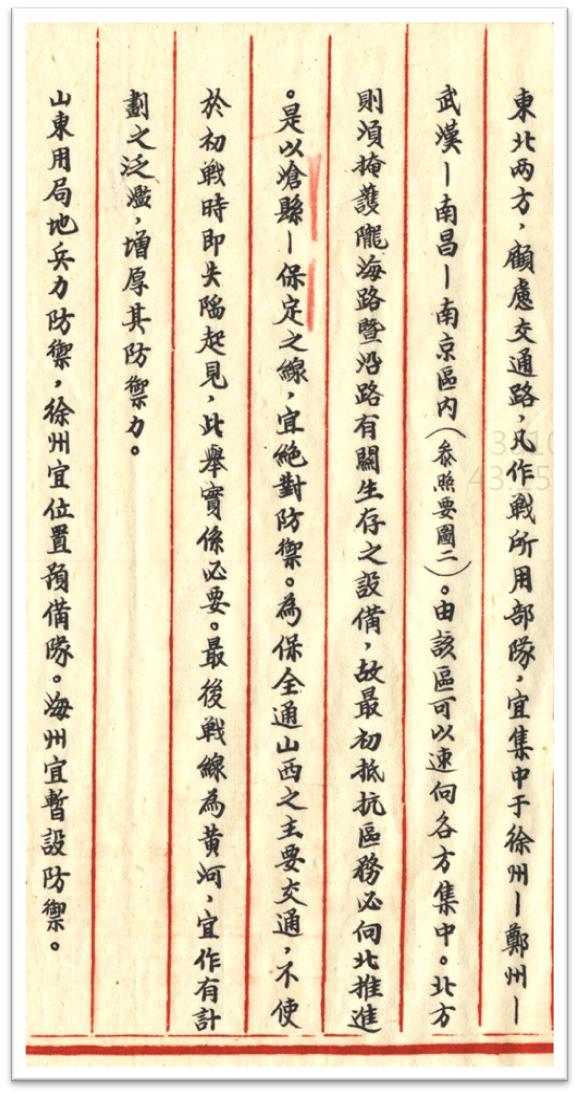 東北两方，顧慮交通路，凡作戰所用部隊，宜集中于徐州—鄭州—
武漢—南昌—南京區内（參照要圖二）。由該區可以速向各方集中。北方
則須掩護隴海路暨沿路有關生存之設備，故最初抵抗區務必向北推進
。是以滄縣—保定之線，宜絶對防禦。為保全通山西之主要交通，不使
於初戰時即失陷起見，此舉實係必要。最後戰線為黄河，宜作有計
劃之泛濫，增厚其防禦力。
山東用局地兵力防禦，徐州宜位置預備隊。海州宜暫設防禦。